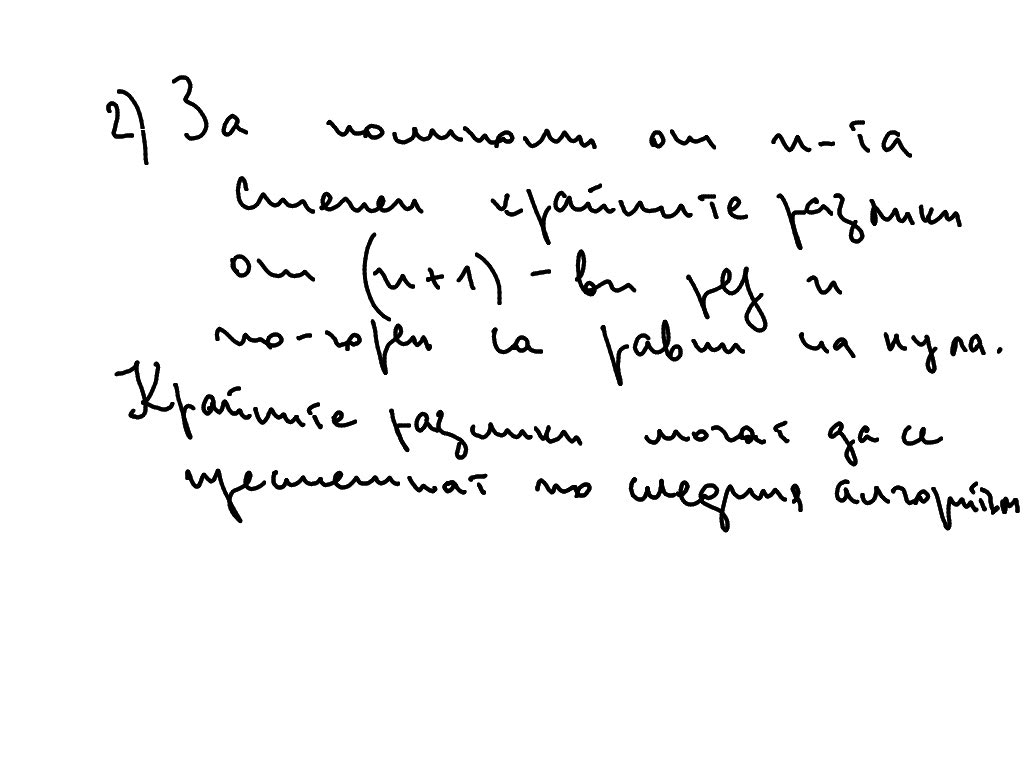 2) За полином от n-та
степен крайните разлики
от (n+1)-ви ред и
по-горен са равни на нула.
Крайните разлики могат да се
пресметнат по следния алгоритъм